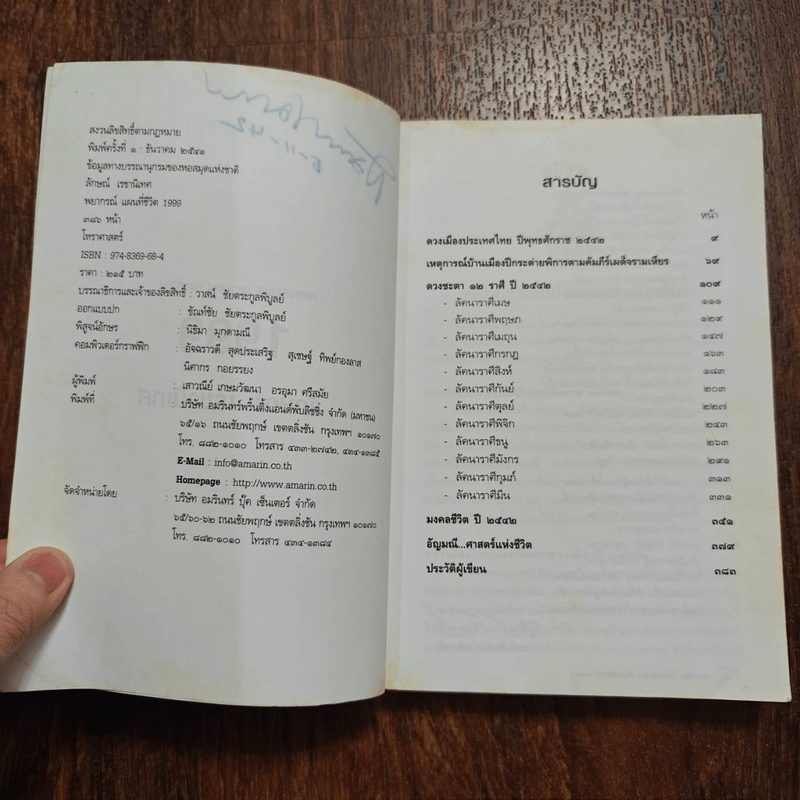 ๖-๑๑-๔๒
สงวนลิขสิทธิ์ตามกฎหมาย
พิมพ์ครั้งที่ ๑ : ธันวาคม ๒๕๔๑
ข้อมูลทางบรรณานุกรมของหอสมุดแห่งชาติ
ลักษณ์ เรขานิเทศ
พยากรณ์ แผนที่ชีวิต 1999
๓๘๖ หน้า
โหราศาสตร์
ISBN : 974-8369-68-4
ราคา : ๒๑๕ บาท
บรรณาธิการและเจ้าของลิขสิทธิ์ : วาสน์ ชัยตระกูลพิบูลย์
ออกแบบปก : ขัณฑ์ชัย ชัยตระกูลพิบูลย์
พิสูจน์อักษร : นิธิมา มุกดามณี
คอมพิวเตอร์กราฟฟิก : อัจฉราวดี สุดประเสริฐ สุเชษฐ์ ทิพย์กองลาส
นิศากร กอยรรยง
ผู้พิมพ์ : เสาวณีย์ เกษมวัฒนา อรอุมา ศรีสมัย
พิมพ์ที่ : บริษัท อมรินทร์พริ้นติ้งแอนด์พับลิชชิ่ง จำกัด (มหาชน)
๖๕/๑๖ ถนนชัยพฤกษ์ เขตตลิ่งชัน กรุงเทพฯ ๑๐๑๗๐
โทร. ๘๘๒-๑๐๑๐ โทรสาร ๔๓๓-๒๗๔๒, ๔๓๔-๑๓๘๕
E-Mail : info@amarin.co.th
Homepage : http://www.amarin.co.th
จัดจำหน่ายโดย : บริษัท อมรินทร์ บุ๊ค เซ็นเตอร์ จำกัด
๖๕/๖๐-๖๒ ถนนชัยพฤกษ์ เขตตลิ่งชัน กรุงเทพฯ ๑๐๑๗๐
โทร. ๘๘๒-๑๐๑๐ โทรสาร ๔๓๔-๑๓๘๔
สารบัญ
หน้า
ดวงเมืองประเทศไทย ปีพุทธศักราช ๒๕๔๒ ๙
เหตุการณ์บ้านเมืองปีกระต่ายพิการตามคัมภีร์เผด็จรามเหียร ๖๙
ดวงชะตา ๑๒ ราศี ปี ๒๕๔๒ ๑๐๙
- ลัคนาราศีเมษ ๑๑๑
- ลัคนาราศีพฤษภ ๑๒๙
- ลัคนาราศีเมถุน ๑๔๗
- ลัคนาราศีกรกฎ ๑๖๓
- ลัคนาราศีสิงห์ ๑๘๓
- ลัคนาราศีกันย์ ๒๐๓
- ลัคนาราศีตุลย์ ๒๒๗
- ลัคนาราศีพิจิก ๒๔๓
- ลัคนาราศีธนู ๒๖๓
- ลัคนาราศีมังกร ๒๙๑
- ลัคนาราศีกุมภ์ ๓๑๓
- ลัคนาราศีมีน ๓๓๑
มงคลชีวิต ปี ๒๕๔๒ ๓๕๑
อัญมณี...ศาสตร์แห่งชีวิต ๓๗๙
ประวัติผู้เขียน ๓๘๓